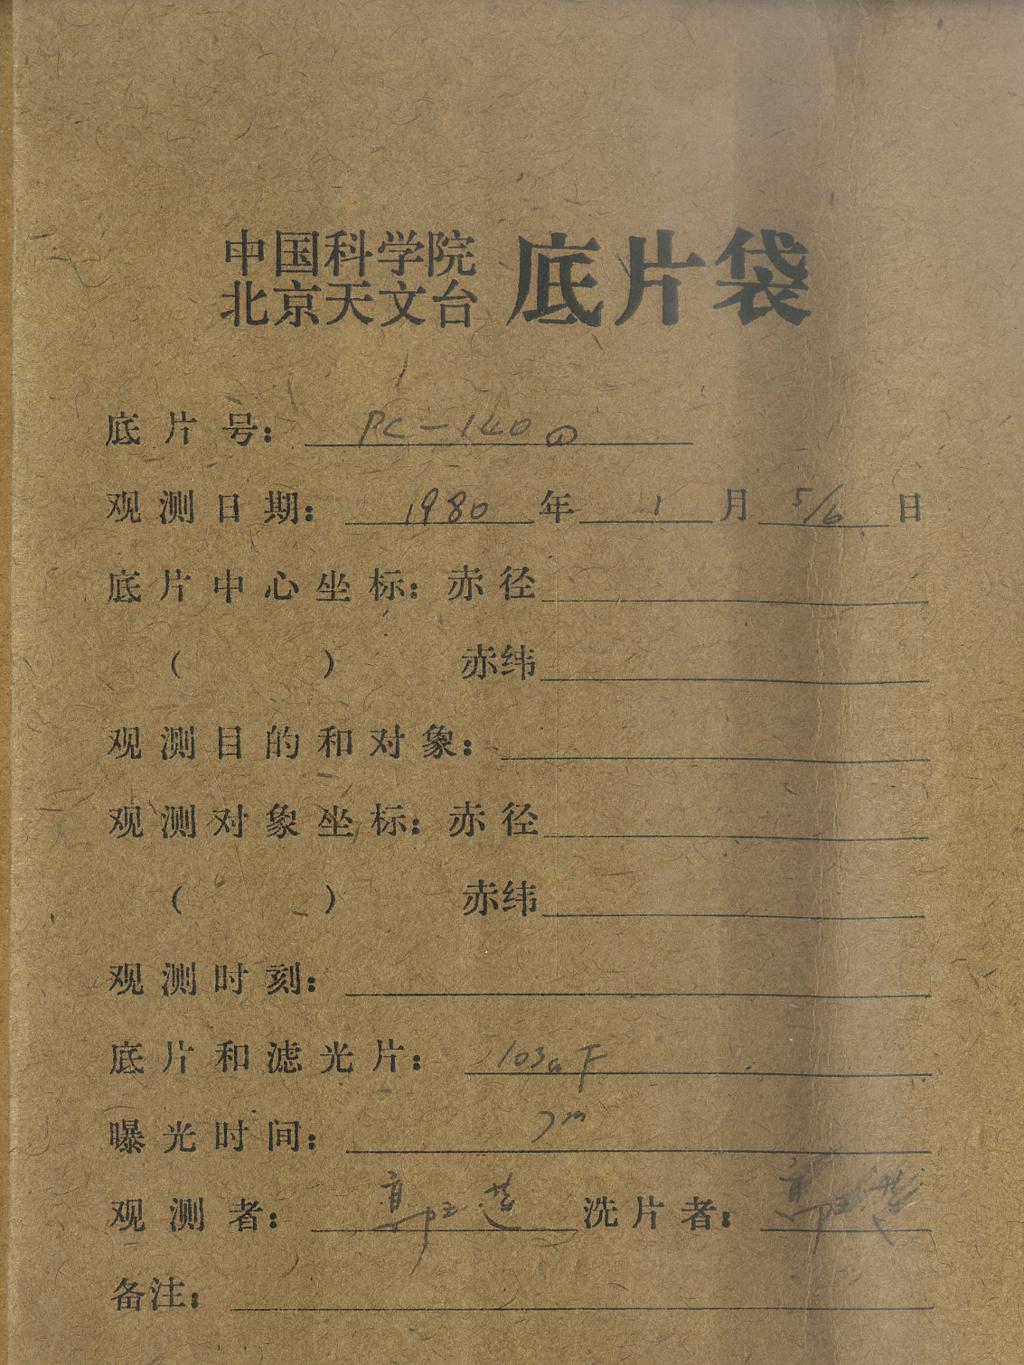 中国科学院
北京天文台
底片袋
底片号: PC-140
观测日期: 1980 年 1 月 5/6 日
底片中心坐标: 赤径
( ) 赤纬
观测目的和对象:
观测对象坐标: 赤径
( ) 赤纬
观测时刻:
底片和滤光片: 103aF
曝光时间: 7m
观测者: 洗片者:
备注: